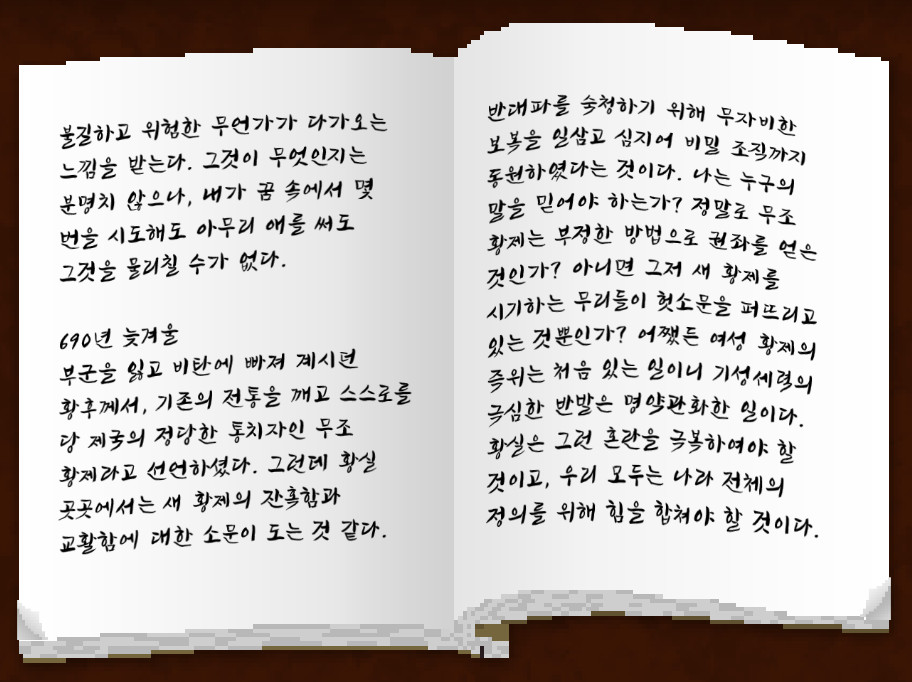 불길하고 위험한 무언가가 다가오는
느낌을 받는다. 그것이 무엇인지는
분명치 않으나, 내가 꿈 속에서 몇
번을 시도해도 아무리 애를 써도
그것을 물리칠 수가 없다.
690년 늦겨울
부군을 잃고 비탄에 빠져 계시던
황후께서, 기존의 전통을 깨고 스스로를
당 제국의 정당한 통치자인 무조
황제라고 선언하셨다. 그런데 황실
곳곳에서는 새 황제의 잔혹함과
교활함에 대한 소문이 도는 것 같다.
반대파를 숙청하기 위해 무자비한
보복을 일삼고 심지어 비밀 조직까지
동원하였다는 것이다. 나는 누구의
말을 믿어야 하는가? 정말로 무조
황제는 부정한 방법으로 권좌를 얻은
것인가? 아니면 그저 새 황제를
시기하는 무리들이 헛소문을 퍼뜨리고
있는 것뿐인가? 어쨌든 여성 황제의
즉위는 처음 있는 일이니 기성세력의
극심한 반발은 명약관화한 일이다.
황실은 그런 혼란을 극복하여야 할
것이고, 우리 모두는 나라 전체의
정의를 위해 힘을 합쳐야 할 것이다.